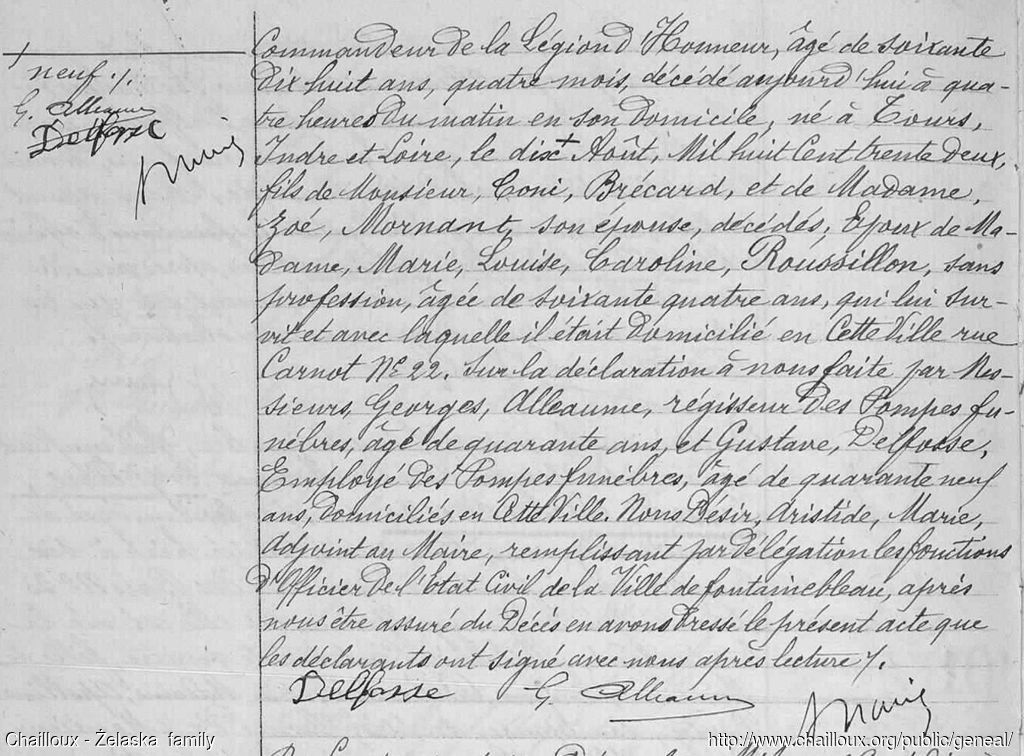 neuf ./.
G. Alleaume
Delfosse
Marie
Commandeur de la Légion d'Honneur, âgé de soixante
dix huit ans, quatre mois, décédé aujourd'hui à qua-
tre heures du matin en son domicile, né à Tours,
Indre et Loire, le dix + Août, Mil huit Cent trente deux,
fils de Monsieur, Coni, Brécard, et de Madame,
Zoé, Mornant, son épouse, décédés, Epoux de Ma-
dame, Marie, Louise, Caroline, Roussillon, sans
profession, âgée de soixante quatre ans, qui lui sur-
vit et avec laquelle il était domicilié en Cette Ville rue
Carnot No 22. Sur la déclaration à nous faite par Mes-
sieurs, Georges, Alleaume, régisseur des Pompes fu-
nèbres, âgé de quarante ans, et Gustave, Delfosse,
Employé des Pompes funèbres, âgé de quarante neuf
ans, domiciliés en Cette Ville. Nous Désir, Aristide, Marie,
Adjoint au Maire, remplissant par délégation les fonctions
d'Officier de l'Etat Civil de la Ville de fontainebleau, après
nous être assuré du Décès en avons dressé le présent acte que
les déclarants ont signé avec nous après lecture ./.
Delfosse G. Alleaume Marie
Chailloux - Żelaska family http://www.chailloux.org/public/geneal/